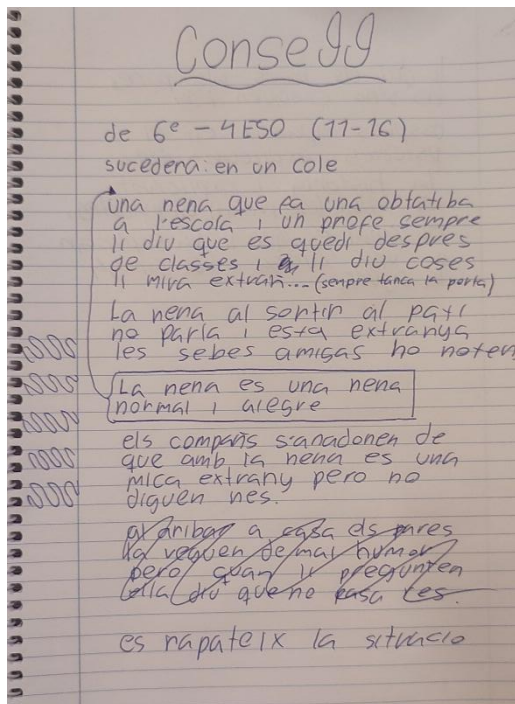 Consejj
de 6e - 4ESO (11-16)
sucedera: en un cole
una nena que fa una obtatiba
a l'escola i un profe sempre
li diu que es quedi despres
de classes i li diu coses
li mira extrañ... (sempre tanca la porta)
La nena al sortir al pati
no parla i esta extranya
les sebes amigas ho noten
La nena es una nena
normal i alegre
els compañs s'anadonen de
que amb la nena es una
mica extrany pero no
diguen nes.
al aribar a casa els pares
la veguen de mal humor
pero quan li pregunten
ella diu que no pasa res.
es rapateix la situacio